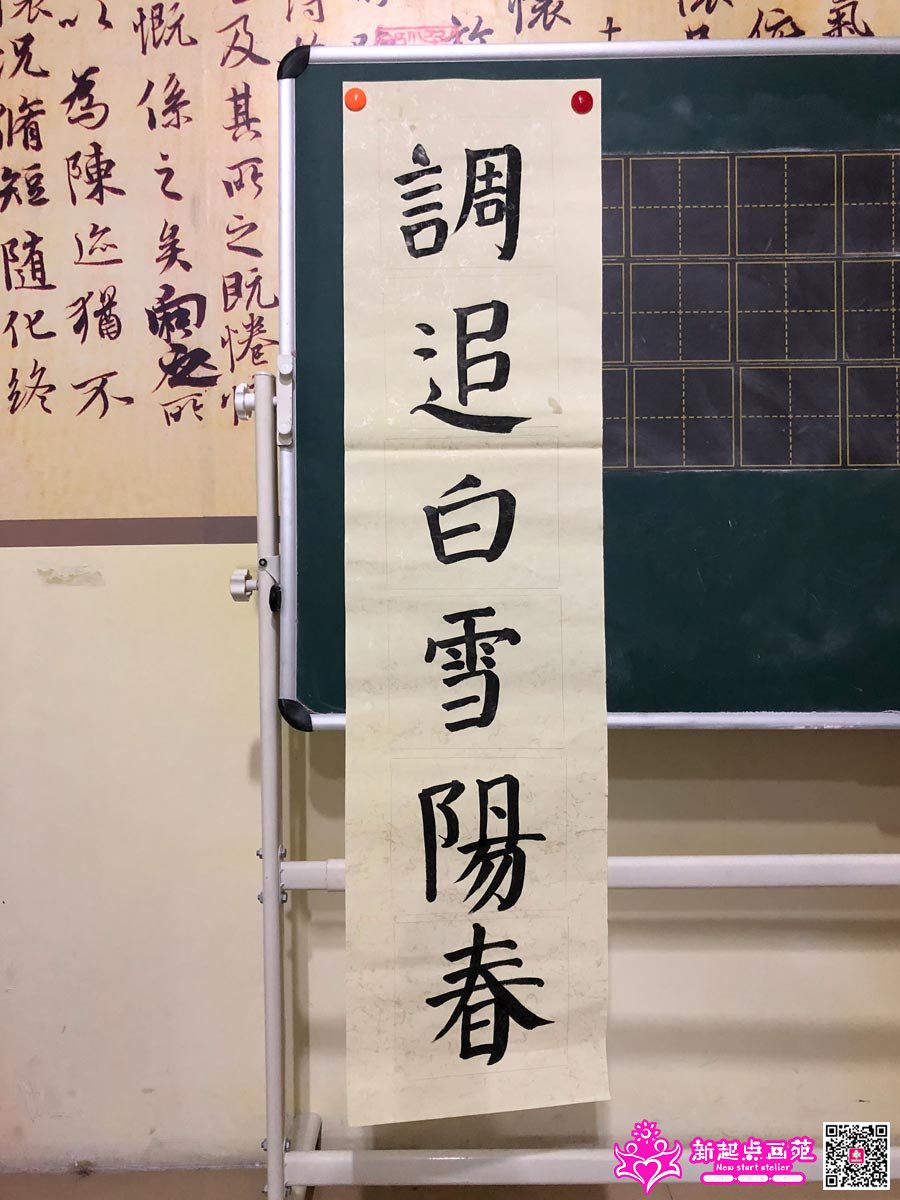 調追白雪陽春
及其所之既惓
慨係之矣向之所
以為陳迹猶不
況脩短随化終
新起点画苑
New start atelier